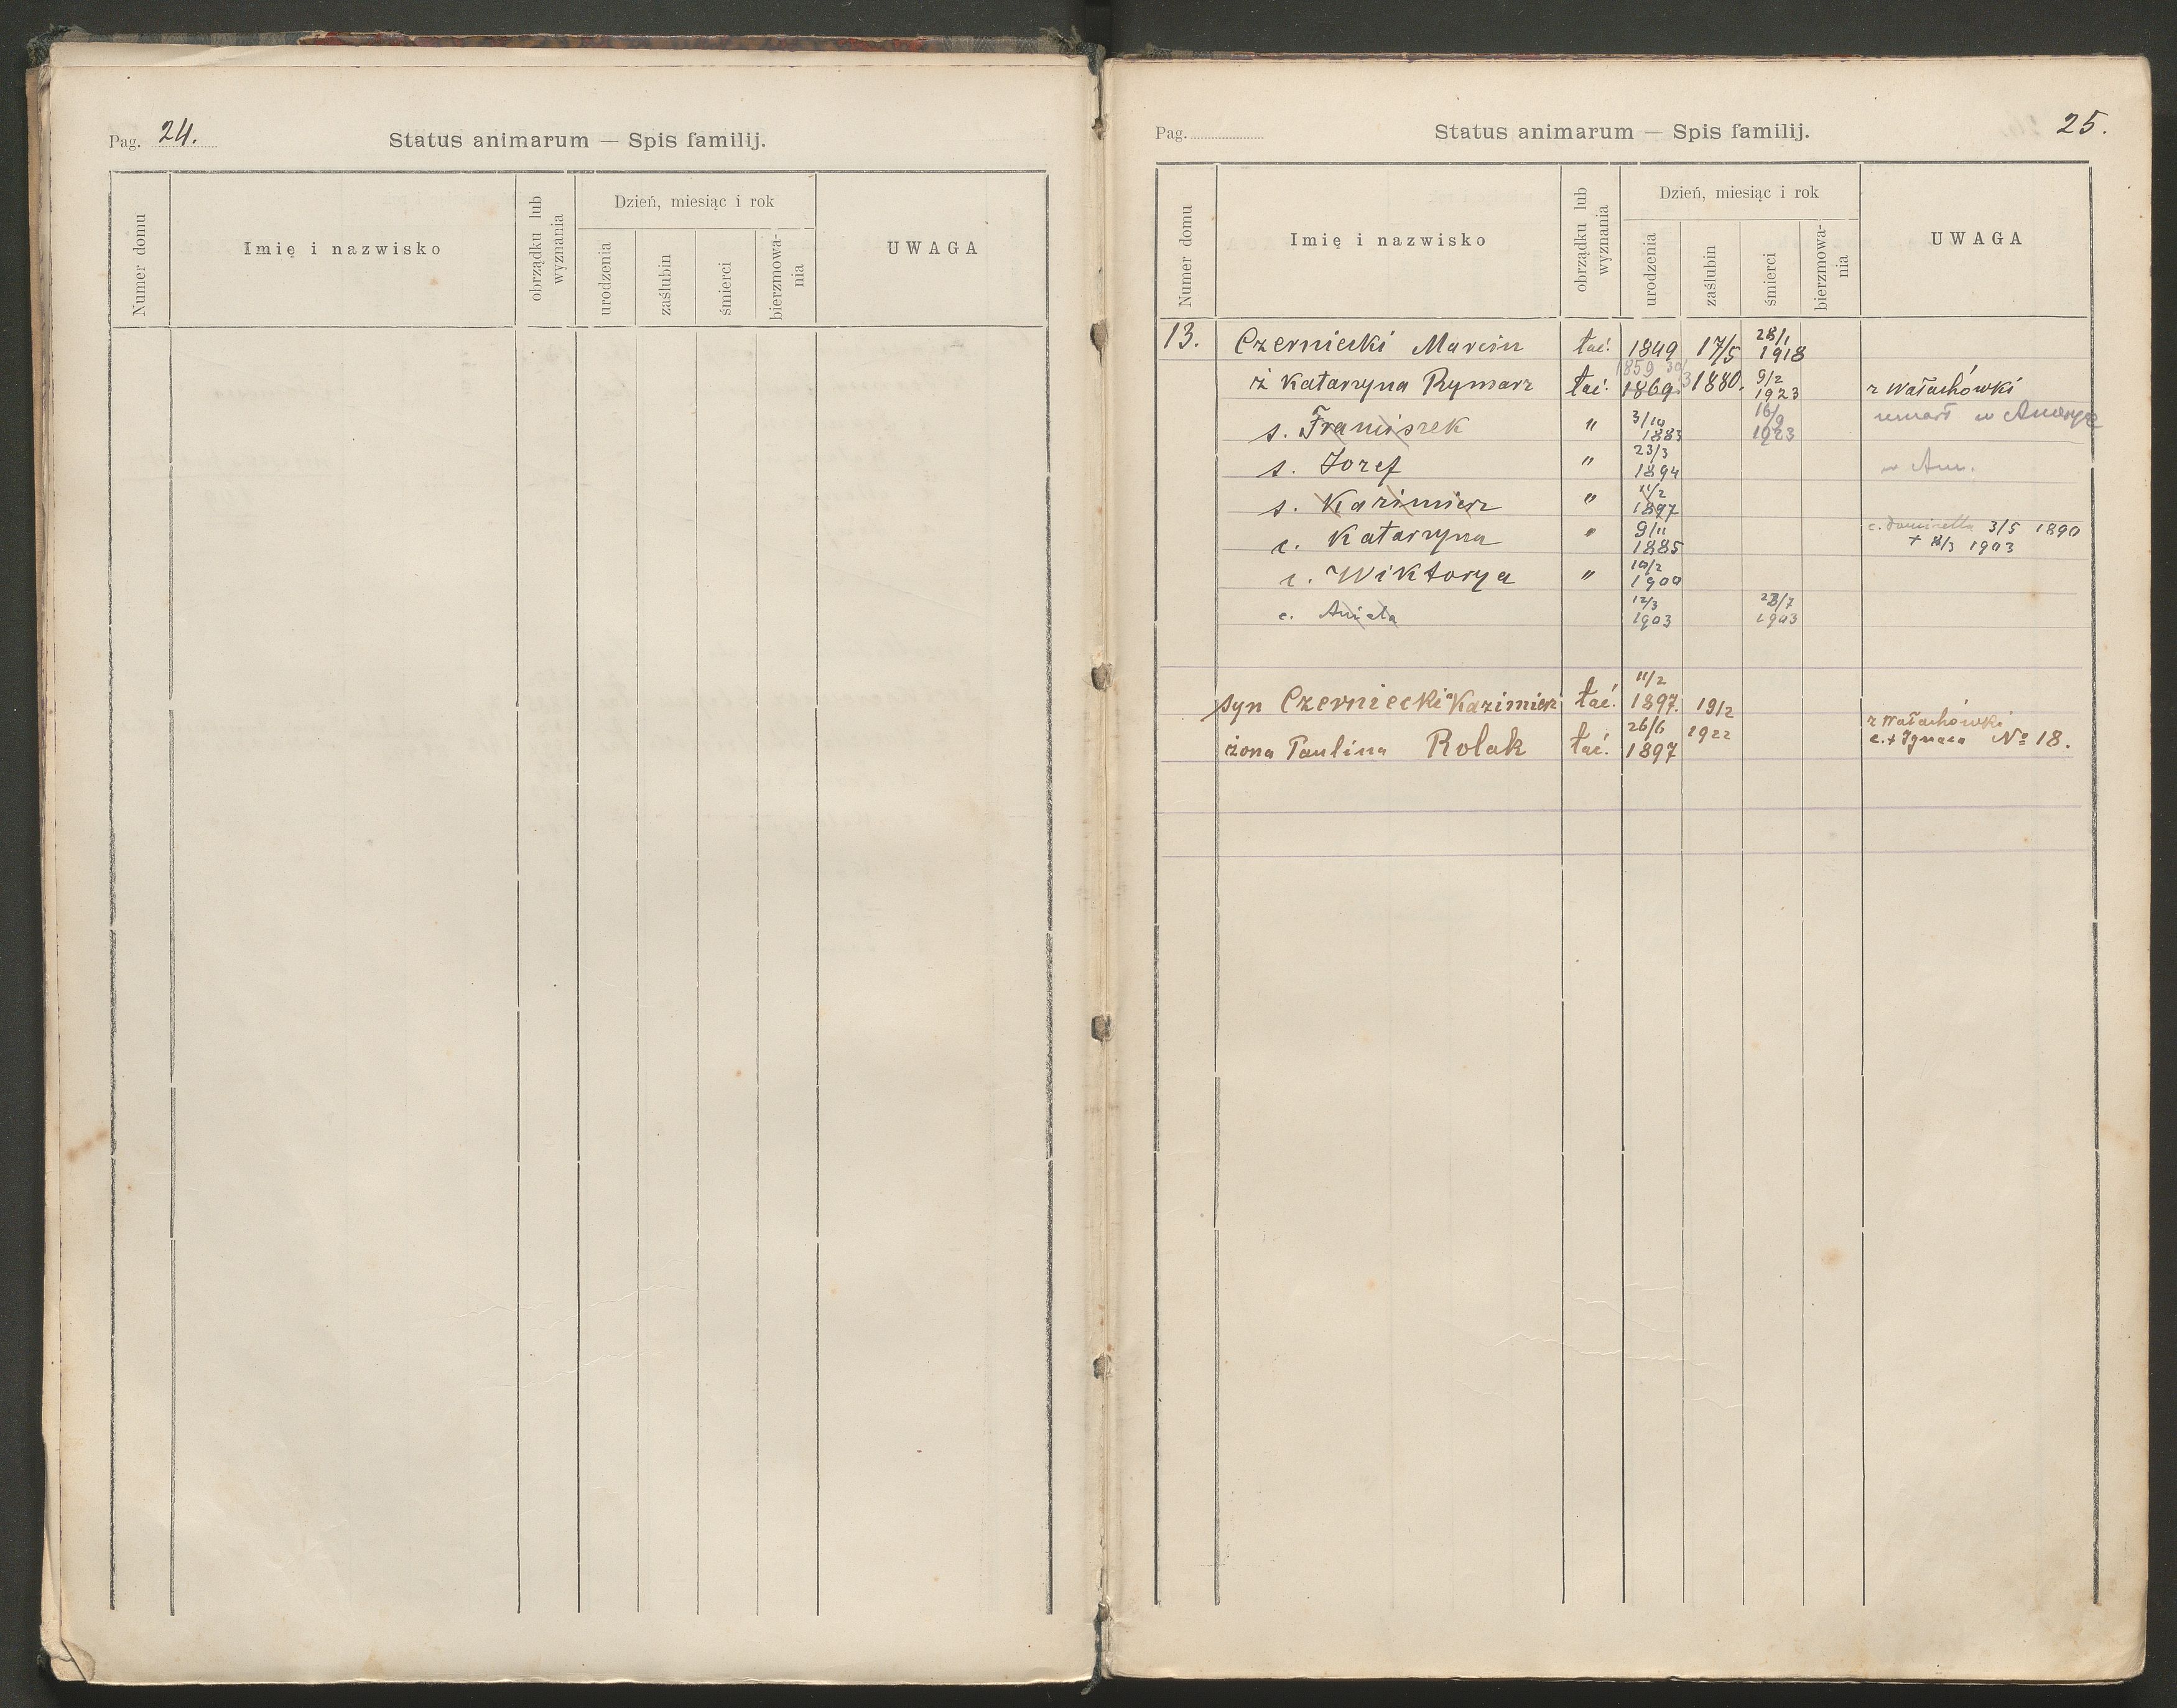 Pag. 24.
Status animarum — Spis familij.
Numer domu
Imię i nazwisko
obrządku lub wyznania
Dzień, miesiąc i rok
urodzenia
zaślubin
śmierci
bierzmowa-
nia
UWAGA
Pag.
Status animarum — Spis familij.
25.
Numer domu
Imię i nazwisko
obrządku lub wyznania
Dzień, miesiąc i rok
urodzenia
zaślubin
śmierci
bierzmowa-
nia
UWAGA
13. Czerniecki Marcin łać. 1849 17/5 28/1 1918
1859 30/3
ż Katarzyna Rymarz łać. 1869 1880. 9/2 1923 z Wałachówki
s. Franciszek " 3/10 1883 16/9 1923 umarł w Ameryce
s. Jozef " 23/3 1894 w Am.
s. Kazimierz " 11/2 1897
c. Katarzyna " 9/11 1885 c. 3/5 1890
+ 8/3 1903
c. Wiktorya " 10/2 1900
c. Aniela 12/3 1903 28/7 1903
syn Czerniecki Kazimierz łać. 11/2 1897. 19/2
żona Paulina Rolak łać. 26/6 1897 1922 z Wałachówki
c. + Ignaca No 18.